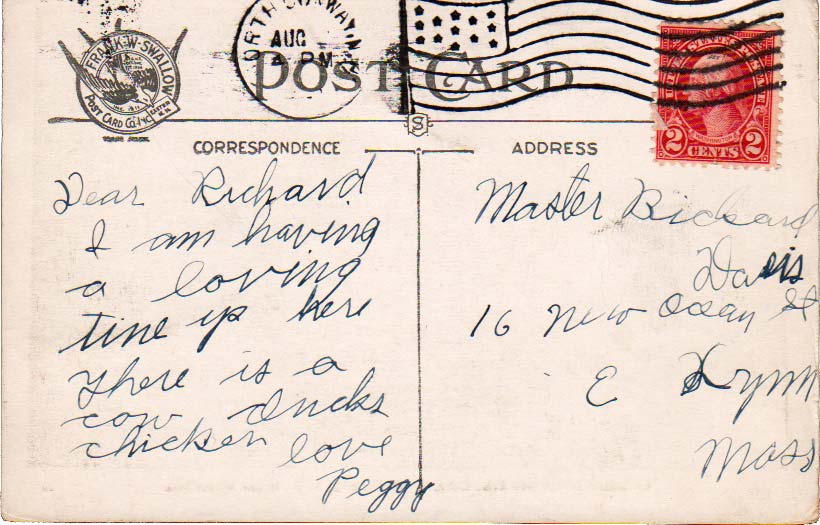 FRANK·W·SWALLOW
POST CARD CO. INC
EXETER
N.H.
NORTH CONWAY, N.H.
AUG
PM
POST CARD
S
2 CENTS 2
CORRESPONDENCE
ADDRESS
Dear Richard
I am having
a loving
tine up here
There is a
cow ducks
chicken love
Peggy
Master Richard
Davis
16 New Ocean St
E Lynn
Mass